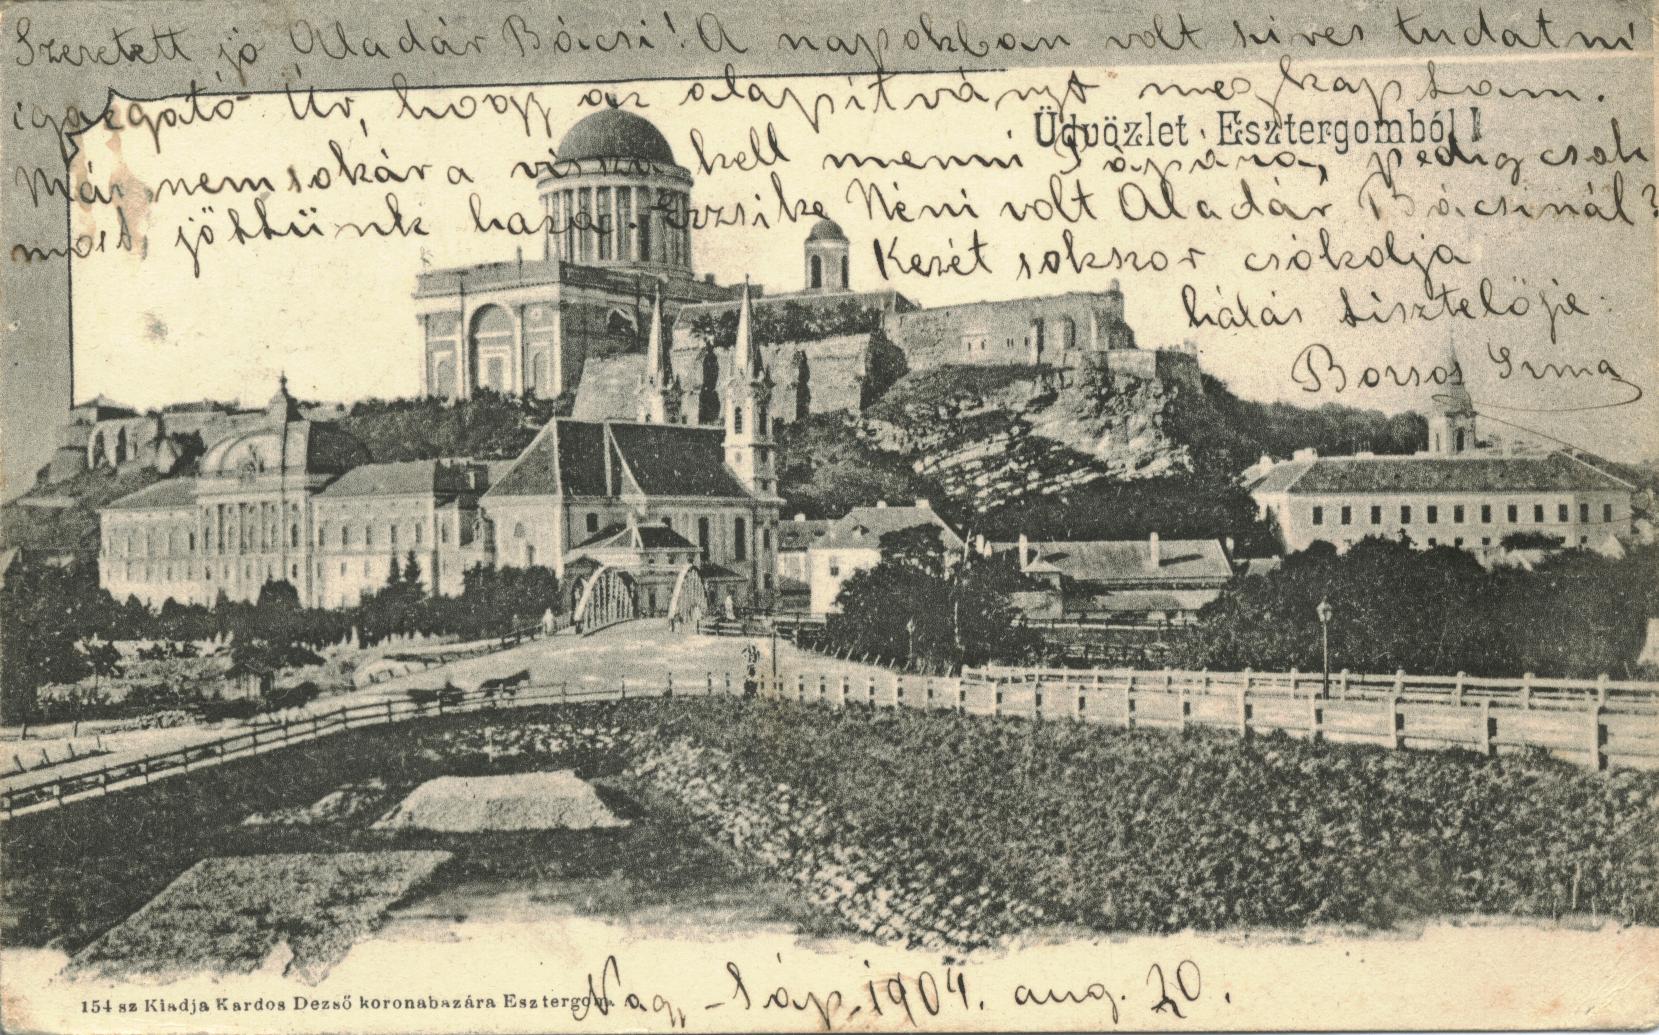 Szeretett jó Aladár Bácsi! A napokban volt szives tudatni
igazgató Úr, hogy az alapítványt megkaptam.
Üdvözlet Esztergomból!
Már nemsokára vissza kell menni Pápára, pedig csak
most jöttünk haza. Erzsike Néni volt Aladár Bácsinál?
Kezét sokszor csókolja
hálás tisztelője.
Borsos Irma
Nagy-Sáp. 1904. aug. 20.
154 sz Kiadja Kardos Dezső koronabazára Esztergom.